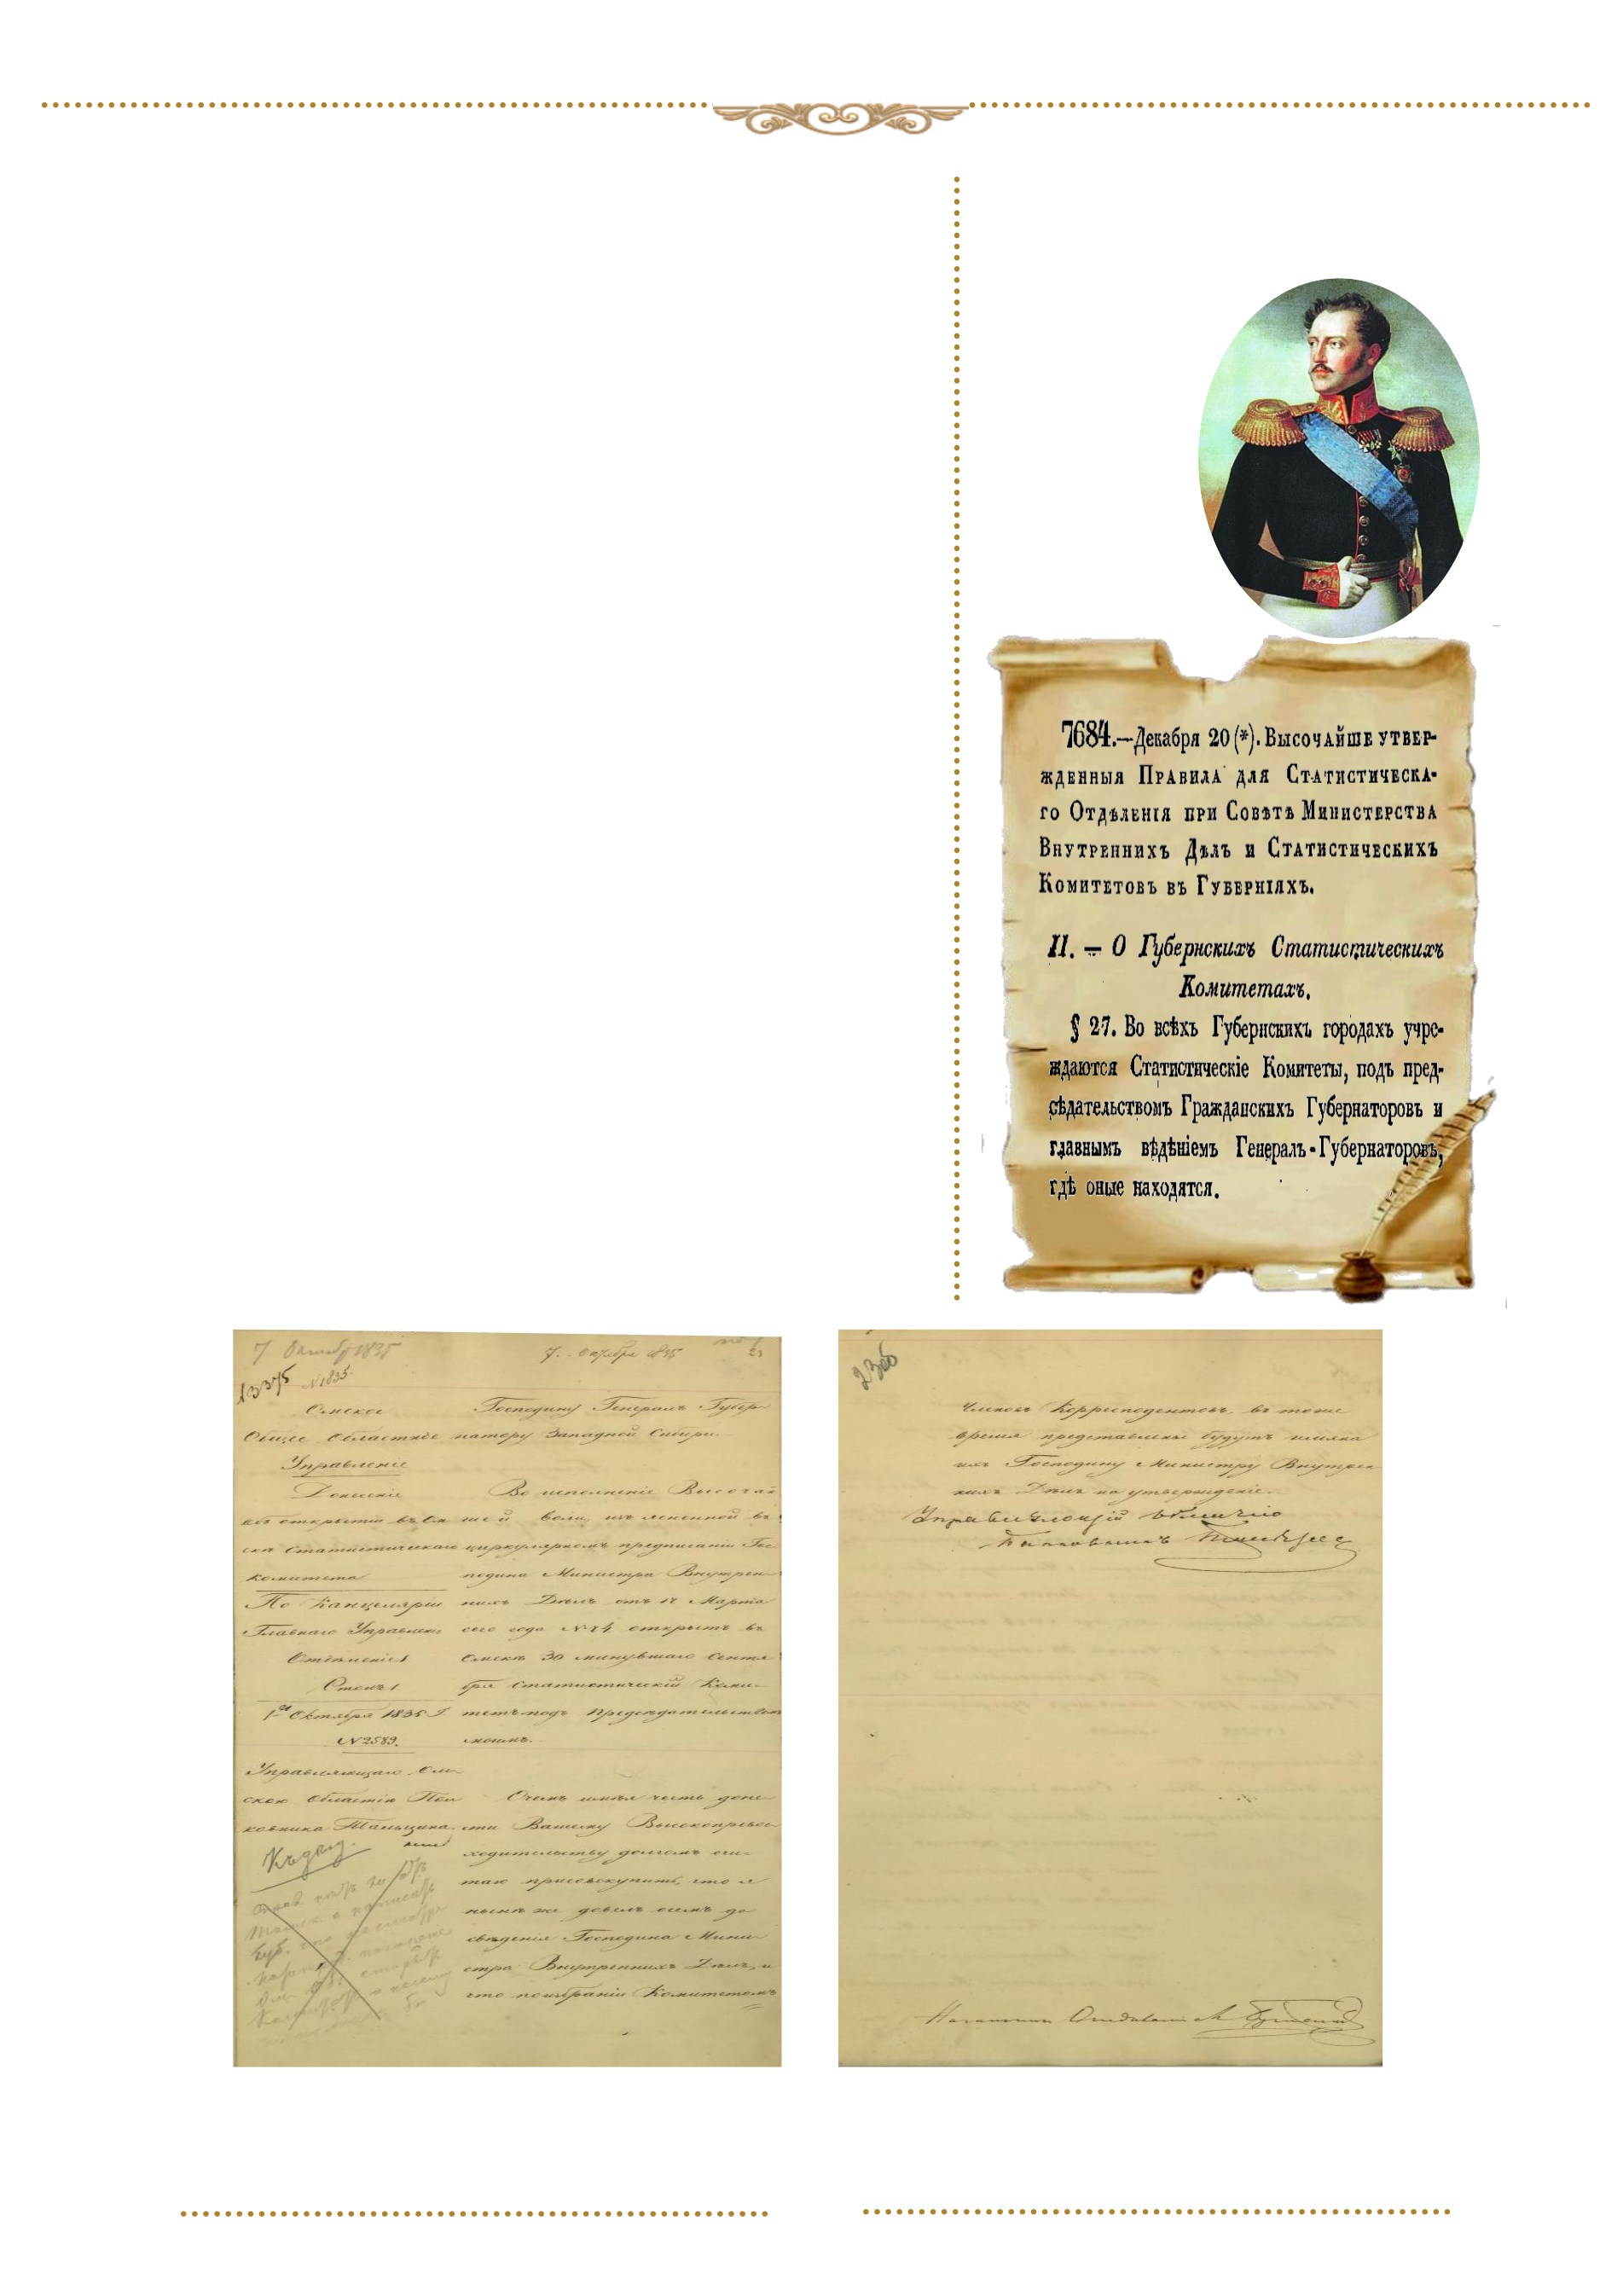 7684.—Декабря 20 (*). Высочайше утвер-
жденныя Правила для Статистическа-
го Отдѣленія при Совѣтѣ Министерства
Внутреннихъ Дѣлъ и Статистическихъ
Комитетовъ въ Губерніяхъ.
II. — О Губернскихъ Статистическихъ
Комитетахъ.
§ 27. Во всѣхъ Губернскихъ городахъ учре-
ждаются Статистическіе Комитеты, подъ пред-
сѣдательствомъ Гражданскихъ Губернаторовъ и
главнымъ вѣдѣніемъ Генералъ-Губернаторовъ,
гдѣ оные находятся.
7 Октября 1835
№ 1835.
Омское
Общее Областное
Управленіе
Донесеніе
объ открытіи въ Ом
ска Статистическаго
комитета
По Канцеляріи
Главнаго Управленія
Отдѣленіе 1
Столъ 1
1 Октября 1835
№ 2589.
Управляющаго Ом
скою Областію Пол
ковника Талызина.
7. Октября 1835
Господину Генералъ Губер
натору Западной Сибири.
Во исполненіе Высочай
шей воли, изъясненной въ
циркулярномъ предписаніи Гос
подина Министра Внутрен
нихъ Дѣлъ отъ 14 Марта
сего года № 74 открытъ въ
Омскѣ 30 минувшаго Сентя
бря Статистическій Коми-
тетъ подъ Предсѣдательствомъ
моимъ.
О чемъ имѣя честь доне
сти Вашему Высокопревос
ходительству долгомъ счи-
таю присовокупить, что я
нынѣ же довелъ о семъ до
свѣденія Господина Мини
стра Внутреннихъ Дѣлъ, и
что по избраніи Комитетомъ
23об
Членовъ Корреспондентовъ въ тоже
время представлены будутъ имена
ихъ Господину Министру Внутрен
нихъ Дѣлъ на утвержденіе.
Управляющій Областію
Полковникъ Талызинъ